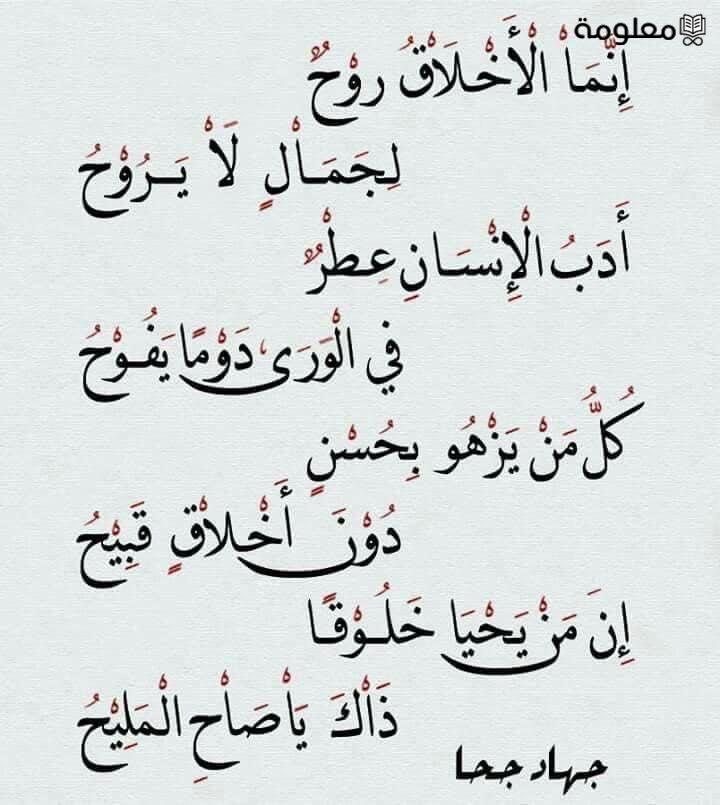 معلومة
إِنَّمَاْ الْأَخْلَاْقُ رُوْحٌ
لِجَمَاْلٍ لَاْ يَـرُوْحُ
أَدَبُ الْإِنْسَـانِ عِـطْرٌ
فِي الْوَرَى دَوْمًا يَفُـوْحُ
كُلُّ مَنْ يَزْهُو بِحُسْنٍ
دُوْنَ أَخْلاْقٍ قَبِيْحُ
إِنَ مَنْ يَحْيَا خَلُـوْقًـا
ذَاْكَ يَاْصَاْحِ الْمَلِيْحُ
جهاد جحا